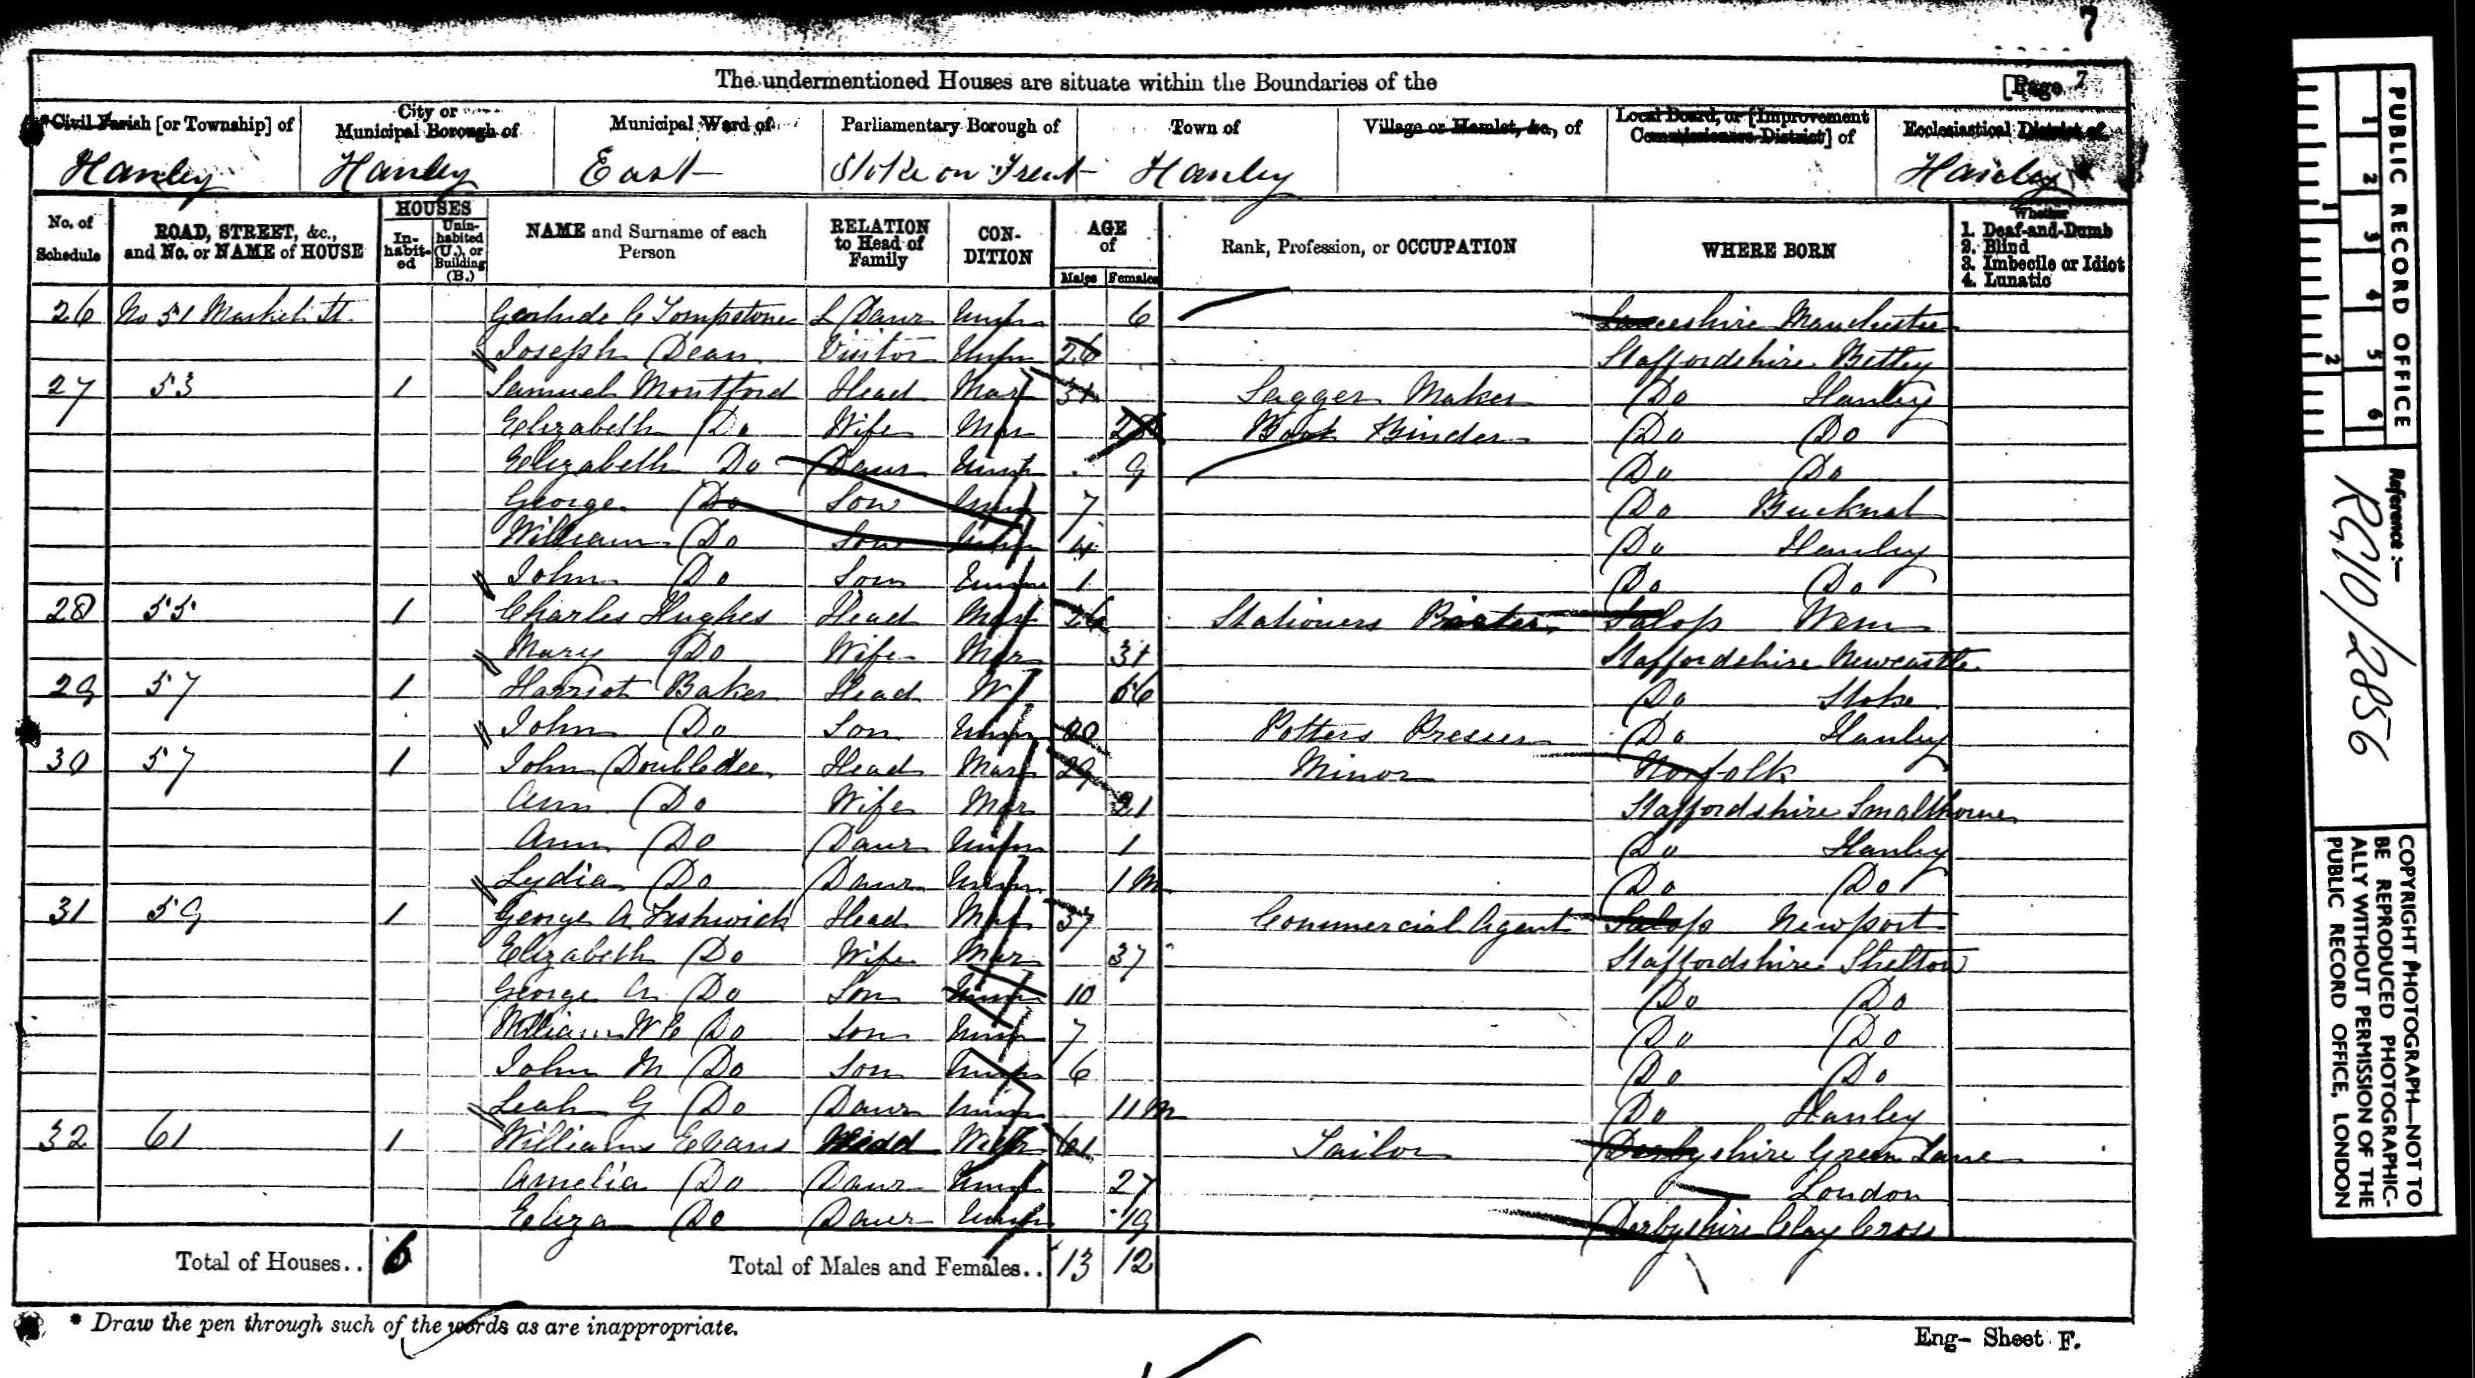 7
The undermentioned Houses are situate within the Boundaries of the [Page 7
Civil Parish [or Township] of City or Municipal Borough of Municipal Ward of Parliamentary Borough of Town of Village or Hamlet, &c., of Local Board, or [Improvement Commissioners District] of Ecclesiastical District of
Hanley Hanley East Stoke on Trent Hanley Hanley
No. of Schedule ROAD, STREET, &c., and No. or NAME of HOUSE HOUSES Inhabited Uninhabited (U.), or Building (B.) NAME and Surname of each Person RELATION to Head of Family CONDITION AGE of Males Females Rank, Profession, or OCCUPATION WHERE BORN Whether 1. Deaf-and-Dumb 2. Blind 3. Imbecile or Idiot 4. Lunatic
26 No 51 Market St. Gertrude C Tompstone L Daur Unm 6 Lanceshire Manchester
Joseph Dean Visitor Unm 26 Staffordshire Betley
27 53 1 Samuel Montford Head Mar Sagger Maker Do Hanley
Elizabeth Do Wife Mar Book Binder Do Do
Elizabeth Do Daur Unm 9 Do Do
George Do Son Unm 7 Do Bucknal
William Do Son Unm 4 Do Hanley
John Do Son Unm 1 Do Do
28 55 1 Charles Hughes Head Mar 26 Stationers Salop Wem
Mary Do Wife Mar 31 Staffordshire Newcastle
29 57 1 Harriot Baker Head W 56 Do Stoke
John Do Son Unm Potters Presser Do Hanley
30 57 1 John Doubledee Head Mar 29 Minor Norfolk
Ann Do Wife Mar 21 Staffordshire Smallthorne
Ann Do Daur Unm 1 Do Hanley
Lydia Do Daur Unm 1 M Do Do
31 59 1 George A Fishwick Head Mar 37 Commercial Agent Salop Newport
Elizabeth Do Wife Mar 37 Staffordshire Shelton
George A Do Son Unm 10 Do Do
William W E Do Son Unm 7 Do Do
John M Do Son Unm 6 Do Do
Leah G Do Daur Unm 11 M Do Hanley
32 61 1 Williams Evans Widr 61 Tailor Derbyshire Green Lane
Amelia Do Daur Unm 27 London
Eliza Do Daur Unm 19 Derbyshire Clay Cross
Total of Houses.. 6 Total of Males and Females.. 13 12
* Draw the pen through such of the words as are inappropriate.
Eng- Sheet F.
PUBLIC RECORD OFFICE
1 2 3 4 5 6
1 2
Reference :-
RG10/2856
COPYRIGHT PHOTOGRAPH—NOT TO
BE REPRODUCED PHOTOGRAPHIC-
ALLY WITHOUT PERMISSION OF THE
PUBLIC RECORD OFFICE, LONDON